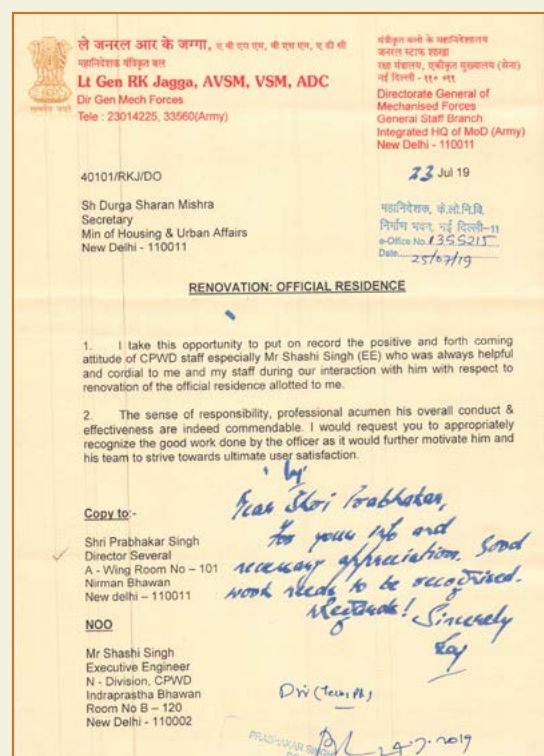 ले जनरल आर के जग्गा, ए वी एस एम, वी एस एम, ए डी सी
महानिदेशक यंत्रिकृत बल
Lt Gen RK Jagga, AVSM, VSM, ADC
Dir Gen Mech Forces
Tele : 23014225, 33560(Army)
यंत्रीकृत बलों के महानिदेशालय
जनरल स्टाफ शाखा
रक्षा मंत्रालय, एकीकृत मुख्यालय (सेना)
नई दिल्ली - ११० ०११
Directorate General of
Mechanised Forces
General Staff Branch
Integrated HQ of MoD (Army)
New Delhi - 110011
40101/RKJ/DO
23 Jul 19
Sh Durga Sharan Mishra
Secretary
Min of Housing & Urban Affairs
New Delhi - 110011
महानिदेशक, के.लो.नि.वि.
निर्माण भवन, नई दिल्ली-11
e-Office No. 1355215
Date 25/07/19
RENOVATION: OFFICIAL RESIDENCE
1. I take this opportunity to put on record the positive and forth coming
attitude of CPWD staff especially Mr Shashi Singh (EE) who was always helpful
and cordial to me and my staff during our interaction with him with respect to
renovation of the official residence allotted to me.
2. The sense of responsibility, professional acumen his overall conduct &
effectiveness are indeed commendable. I would request you to appropriately
recognize the good work done by the officer as it would further motivate him and
his team to strive towards ultimate user satisfaction.
Copy to:-
Shri Prabhakar Singh
Director Several
A - Wing Room No – 101
Nirman Bhawan
New delhi – 110011
Dear Shri Prabhakar,
For your info and
necessary appreciation. Good
work needs to be recognised.
Regards! Sincerely
NOO
Mr Shashi Singh
Executive Engineer
N - Division, CPWD
Indraprastha Bhawan
Room No B – 120
New Delhi - 110002
PRABHAKAR SINGH
24-7-2019